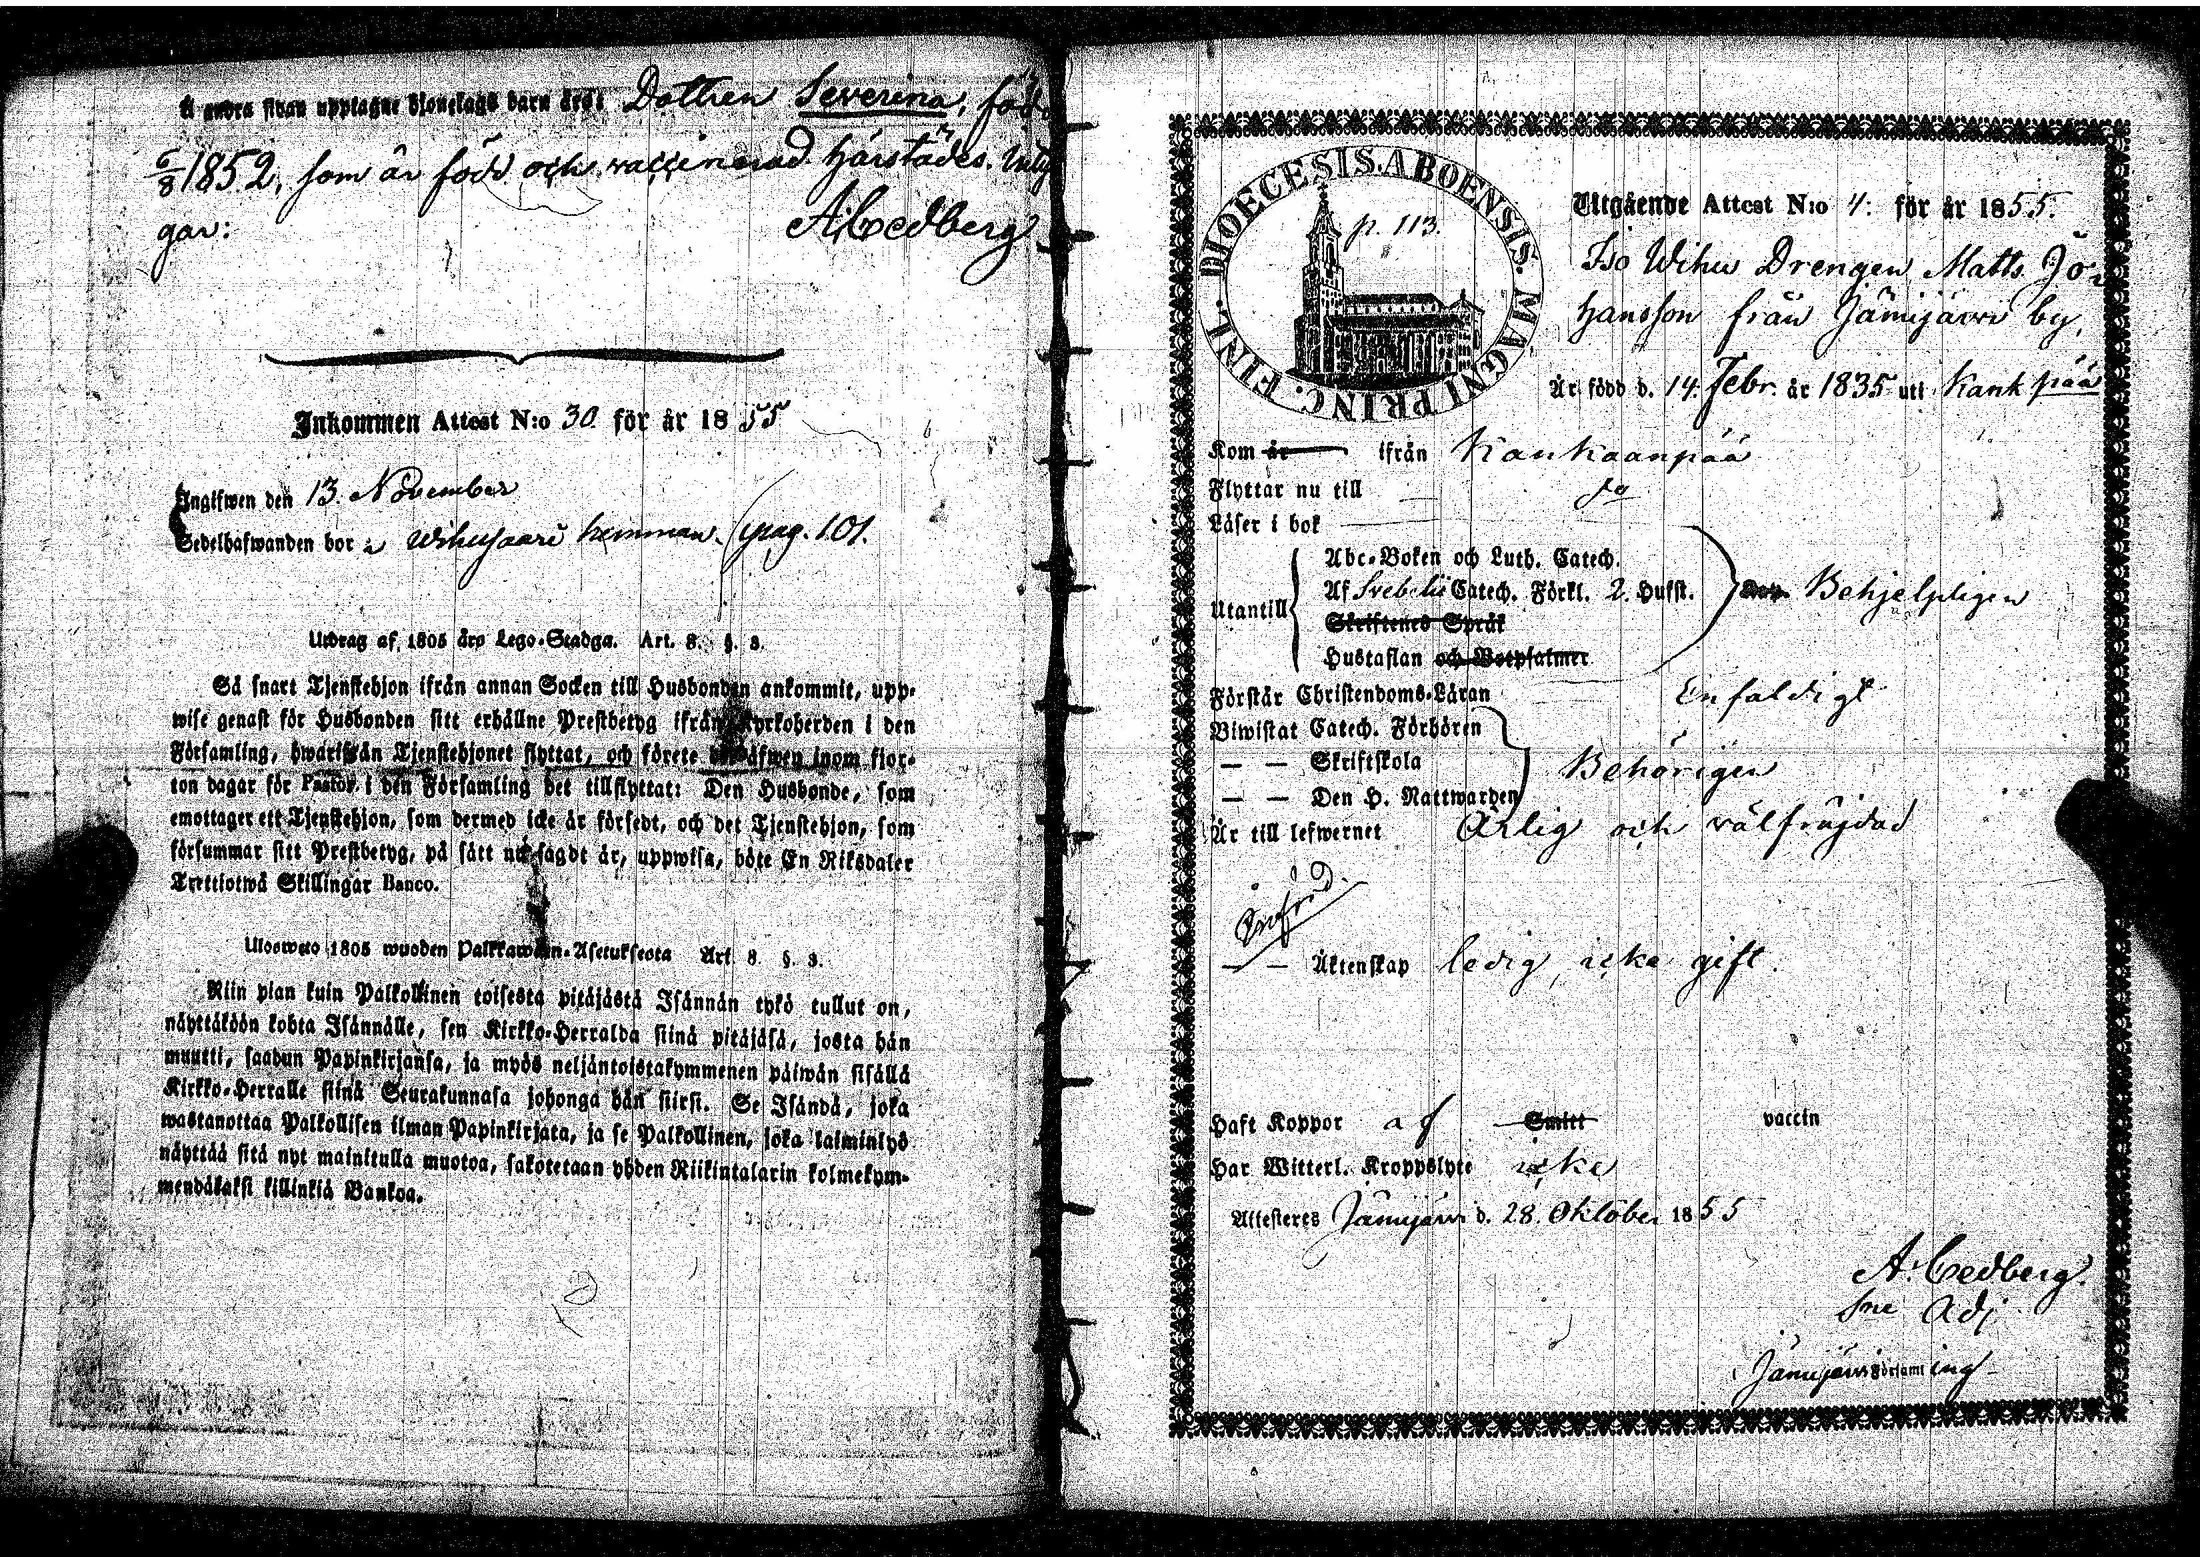 Å andra sidan upptagne hjonelags barn äro: Dottren Severina, född
6/8 1852, som är född och vaccinerad härstädes. Inty
gar:
A Cedberg
Inkommen Attest N:o 30 för år 1855
Ingifwen den 13. November
Sedelhafwanden bor å Wihusaari hemman. (pag. 101.
Utdrag af 1805 års Lego-Stadga. Art. 8. §. 3.
Så snart Tjenstehjon ifrån annan Socken till Husbonden ankommit, upp-
wise genast för Husbonden sitt erhållne Prestbetyg ifrån Kyrkoherden i den
Församling, hwarifrån Tjenstehjonet flyttat, och förete det äfwen inom fjor-
ton dagar för Pastor i den Församling det tillflyttat: Den Husbonde, som
emottager ett Tjenstehjon, som dermed icke är försedt, och det Tjenstehjon, som
försummar sitt Prestbetyg, på sätt nu sagdt är, uppwisa, böte En Riksdaler
Trettiotwå Skillingar Banco.
Uloswето 1805 wuoden Palkkawäen-Asetuksesta Art. 8. §. 3.
Niin pian kuin Palkollinen toisesta pitäjästä Isännän tykö tullut on,
näyttäköön kohta Isännälle, sen Kirkko-Herralda siinä pitäjäsä, josta hän
muutti, saadun Papinkirjansa, ja myös neljäntoistakymmenen päiwän sisällä
Kirkko-Herralle siinä Seurakunnasa johonga hän siirsi. Se Isändä, joka
wastanottaa Palkollisen ilman Papinkirjata, ja se Palkollinen, joka laiminlyö
näyttää sitä nyt mainitulla muotoa, sakotetaan yhden Riikintalarin kolmekym-
mendäkaksi killinkiä Bankoa.
DIOECESIS. ABOENSIS. MAGNI PRINC. FINL.
p. 113.
Utgående Attest N:o 4. för år 1855.
Iso Wihu Drengen Matts Jo-
hansson från Jämijärvi by,
Är född d. 14. Febr. år 1835 uti Kankpää
Kom år ifrån Kankaanpää
Flyttar nu till do
Läser i bok
Abc-Boken och Luth. Catech.
Utantill Af Svebelii Catech. Förkl. 2. Hufst. Behjelpligen
Skriftenes Språk
Hustaflan och Botpsalmer
Förstår Christendoms-Läran Enfaldigt
Biwistat Catech. Förhören
— — Skriftskola Behörigen
— — Den H. Nattwarden
Är till lefwernet Ärlig och välfräjdad
— — Äktenskap ledig, icke gift.
Haft Koppor af Smitt vaccin
Har Witterl. Kroppslyte icke
Attesteres Jämijärvi d. 28. Oktober 1855
A. Cedberg.
Sne Adj
Jämijärvi Församling